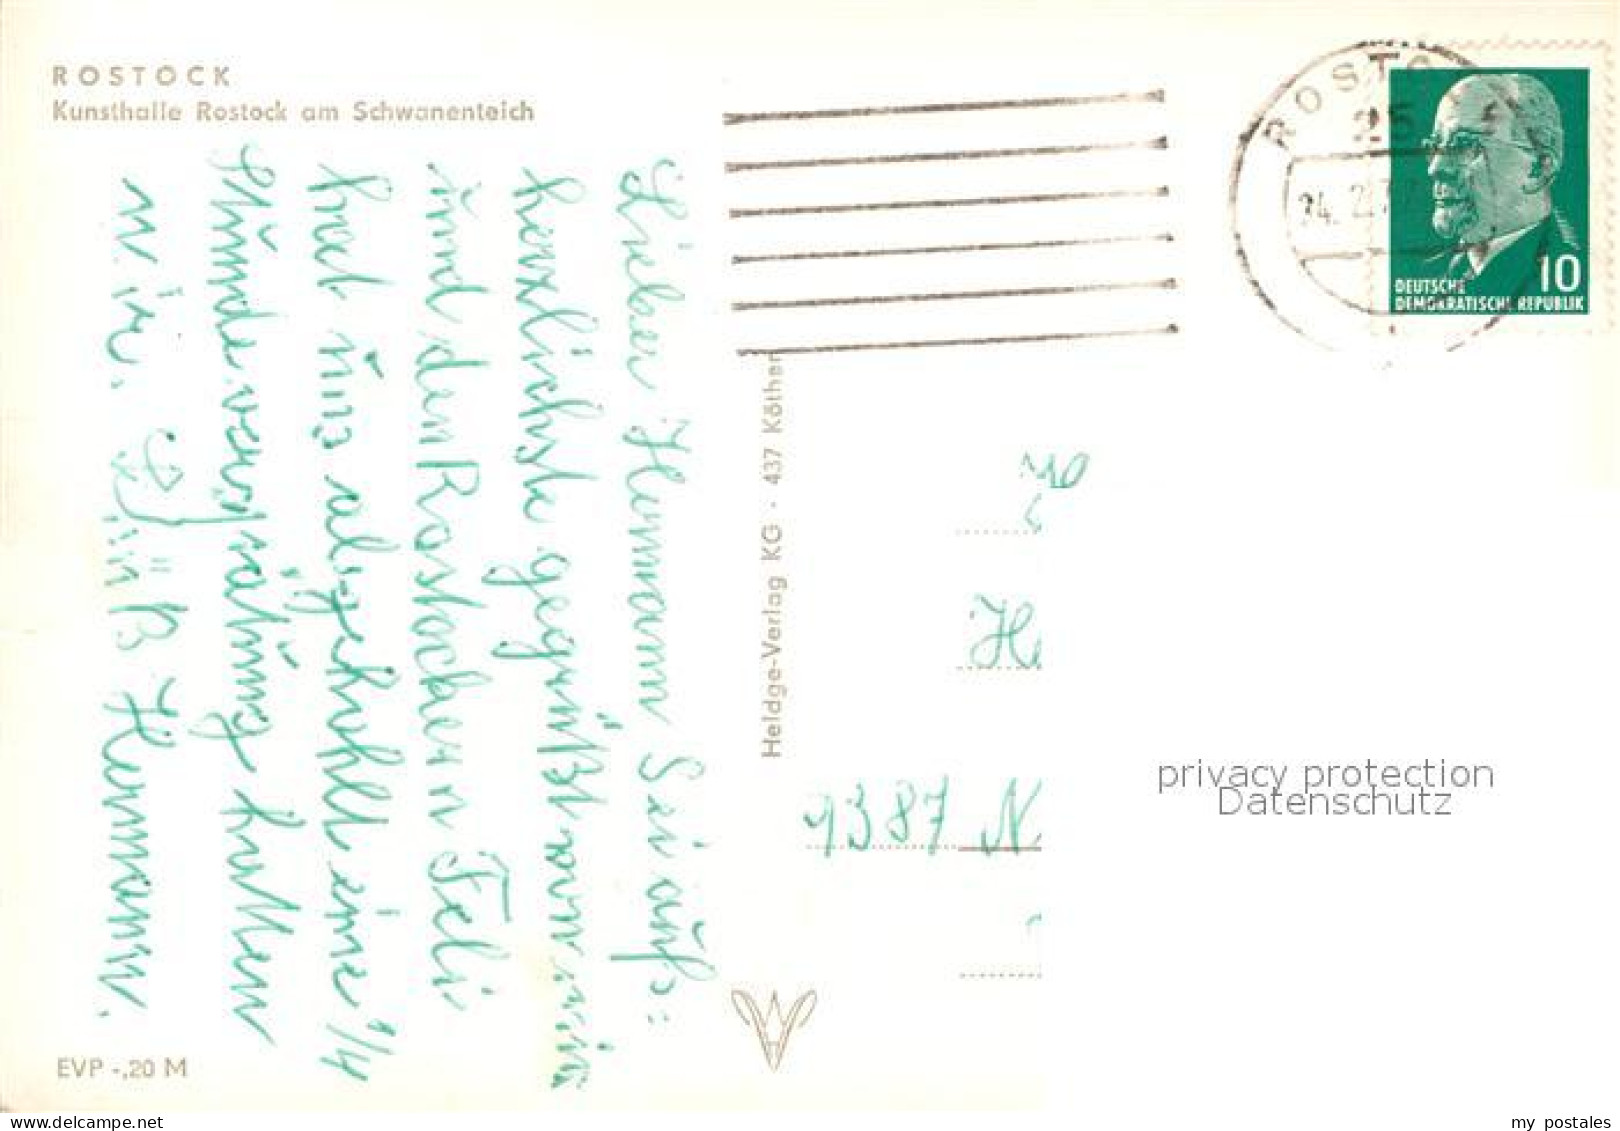 ROSTOCK
Kunsthalle Rostock am Schwanenteich
Lieber Hermann Sei aufs
herzlichste gegrüßt von mir
und den Rostockern Feli
hat uns abgeholt eine 1/4
Stunde verspätung hatten
wir. Gruß Hermann.
EVP -,20 M
Heldge-Verlag KG · 437 Köthen
ROSTO
25
24. 2. 7
10
DEUTSCHE
DEMOKRATISCHE REPUBLIK
He
9387 N
privacy protection
Datenschutz
my postales